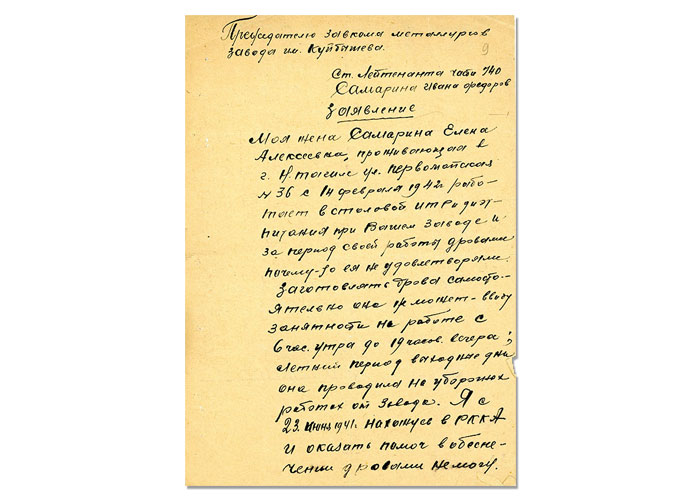 Председателю завкома металлургов
завода им. Куйбышева.
9
Ст. Лейтенанта части 740
Самарина Ивана Федоров
Заявление
Моя жена Самарина Елена
Алексеевна, проживающая в
г. Н. Тагиле ул. Первомайская
№ 36 с 14 февраля 1942г. рабо-
тает в столовой ИТР и диэт-
питания при Вашем заводе и
за период своей работы дровами
почему-то ея не удовлетворяли.
Заготовлять дрова самосто-
ятельно она не может - ввиду
занятности на работе с
6 час. утра до 19 часов. вечера;
летний период выходные дни
она проводила на уборочных
работах от завода. Я с
23. июня 1941г. нахожусь в РККА
и оказать помоч в обеспе-
чении дровами немогу.